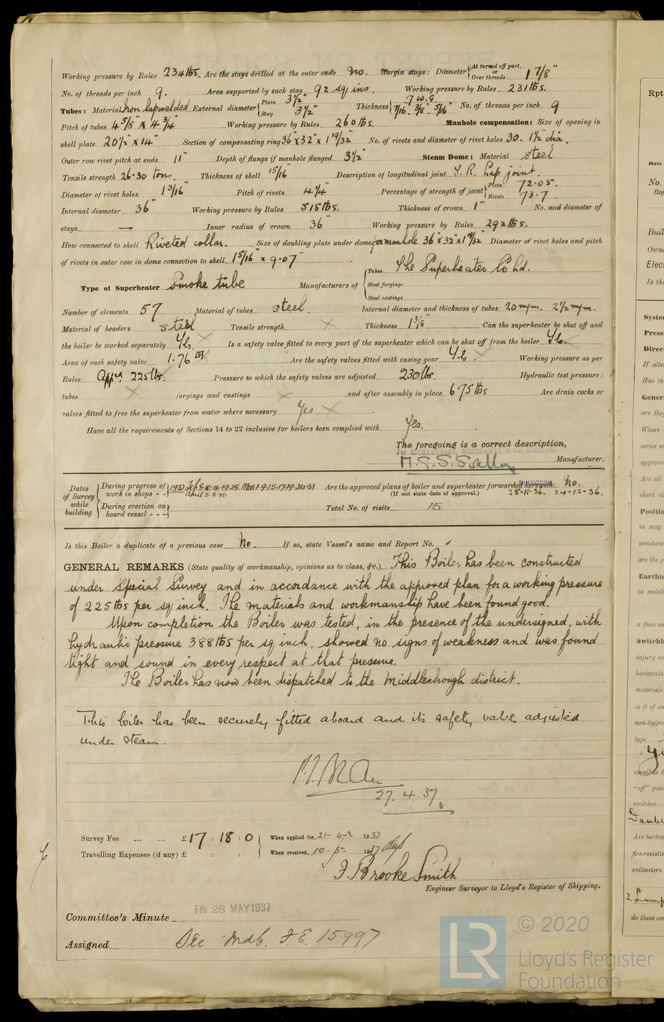 Working pressure by Rules 234 lbs. Are the stays drilled at the outer ends No. Margin stays: Diameter { At turned off part, or Over threads 1 7/8"
No. of threads per inch 9. Area supported by each stay 92 sq ins. Working pressure by Rules 231 lbs.
Tubes: Material Iron lapwelded External diameter { Plain 3½" Stay 3½" Thickness { 7 W.G. 7/16" 3/8" 5/16" No. of threads per inch 9
Pitch of tubes 4 5/8" x 4 3/4" Working pressure by Rules 260 lbs. Manhole compensation: Size of opening in
shell plate 20½" x 14" Section of compensating ring 36" x 32" x 1 19/32" No. of rivets and diameter of rivet holes 30. 1½" dia.
Outer row rivet pitch at ends 11" Depth of flange if manhole flanged 3½" Steam Dome: Material Steel
Tensile strength 26-30 tons. Thickness of shell 15/16 Description of longitudinal joint T. R. Lap joint.
Diameter of rivet holes 1 5/16" Pitch of rivets 4¼" Percentage of strength of joint { Plate 72.05. Rivets 73.7.
Internal diameter 36" Working pressure by Rules 515 lbs. Thickness of crown 1" No. and diameter of
stays — Inner radius of crown 36" Working pressure by Rules 292 lbs.
How connected to shell Riveted collar. Size of doubling plate under dome for manhole 36" x 32" x 1 19/32" Diameter of rivet holes and pitch
of rivets in outer row in dome connection to shell 1 5/16" x 9.07"
Type of Superheater Smoke tube Manufacturers of { Tubes The Superheater Co Ltd. Steel forgings Steel castings
Number of elements 57 Material of tubes Steel. Internal diameter and thickness of tubes 20 m/m. 2½ m/m.
Material of headers Steel Tensile strength Thickness 1 1/8" Can the superheater be shut off and
the boiler be worked separately Yes. Is a safety valve fitted to every part of the superheater which can be shut off from the boiler Yes.
Area of each safety valve 1.76 □" Are the safety valves fitted with easing gear Yes. Working pressure as per
Rules App'd 225 lbs. Pressure to which the safety valves are adjusted 230 lbs. Hydraulic test pressure:
tubes forgings and castings and after assembly in place 675 lbs Are drain cocks or
valves fitted to free the superheater from water where necessary Yes
Have all the requirements of Sections 14 to 22 inclusive for boilers been complied with Yes.
The foregoing is a correct description,
Manufacturer.
Dates of Survey while building { During progress of work in shops - - } 1937 { During erection on board vessel - - - }
Are the approved plans of boiler and superheater forwarded herewith No.
(If not state date of approval.) 25-11-36. 24-12-36.
Total No. of visits 15
Is this Boiler a duplicate of a previous case No. If so, state Vessel's name and Report No.
GENERAL REMARKS (State quality of workmanship, opinions as to class, &c.) This Boiler has been constructed
under Special Survey and in accordance with the approved plan for a working pressure
of 225 lbs per sq inch. The materials and workmanship have been found good.
Upon completion the Boiler was tested, in the presence of the undersigned, with
hydraulic pressure 388 lbs per sq inch, showed no signs of weakness and was found
tight and sound in every respect at that pressure.
The Boiler has now been dispatched to the Middlesbrough district.
This boiler has been securely fitted aboard and its safety valve adjusted
under steam.
27.4.37.
Survey Fee ... ... £17 : 18 : 0 When applied for, 1937
Travelling Expenses (if any) £ : : When received, 10-5- 1937
J. Brooke Smith
Engineer Surveyor to Lloyd's Register of Shipping.
Committee's Minute FRI 28 MAY 1937
Assigned See Mdb. F.E. 15997
© 2020
LR
Lloyd's Register
Foundation